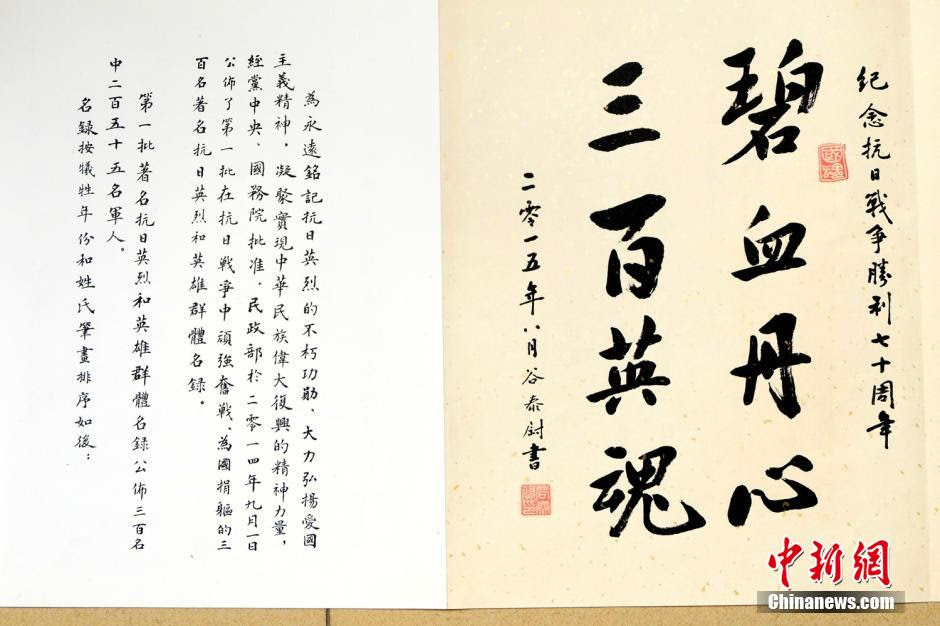 紀念抗日戰爭勝利七十周年
碧血丹心
三百英魂
二零一五年八月谷泰尉書
為永遠銘記抗日英烈的不朽功勛、大力弘揚愛國
主義精神，凝聚實現中華民族偉大復興的精神力量，
經黨中央、國務院批准，民政部於二零一四年九月一日
公佈了第一批在抗日戰爭中頑強奮戰、為國捐軀的三
百名著名抗日英烈和英雄群體名録。
第一批著名抗日英烈和英雄群體名録公佈三百名
中二百五十五名軍人。
名録按犧牲年份和姓氏筆畫排序如後：
中新網
Chinanews.com